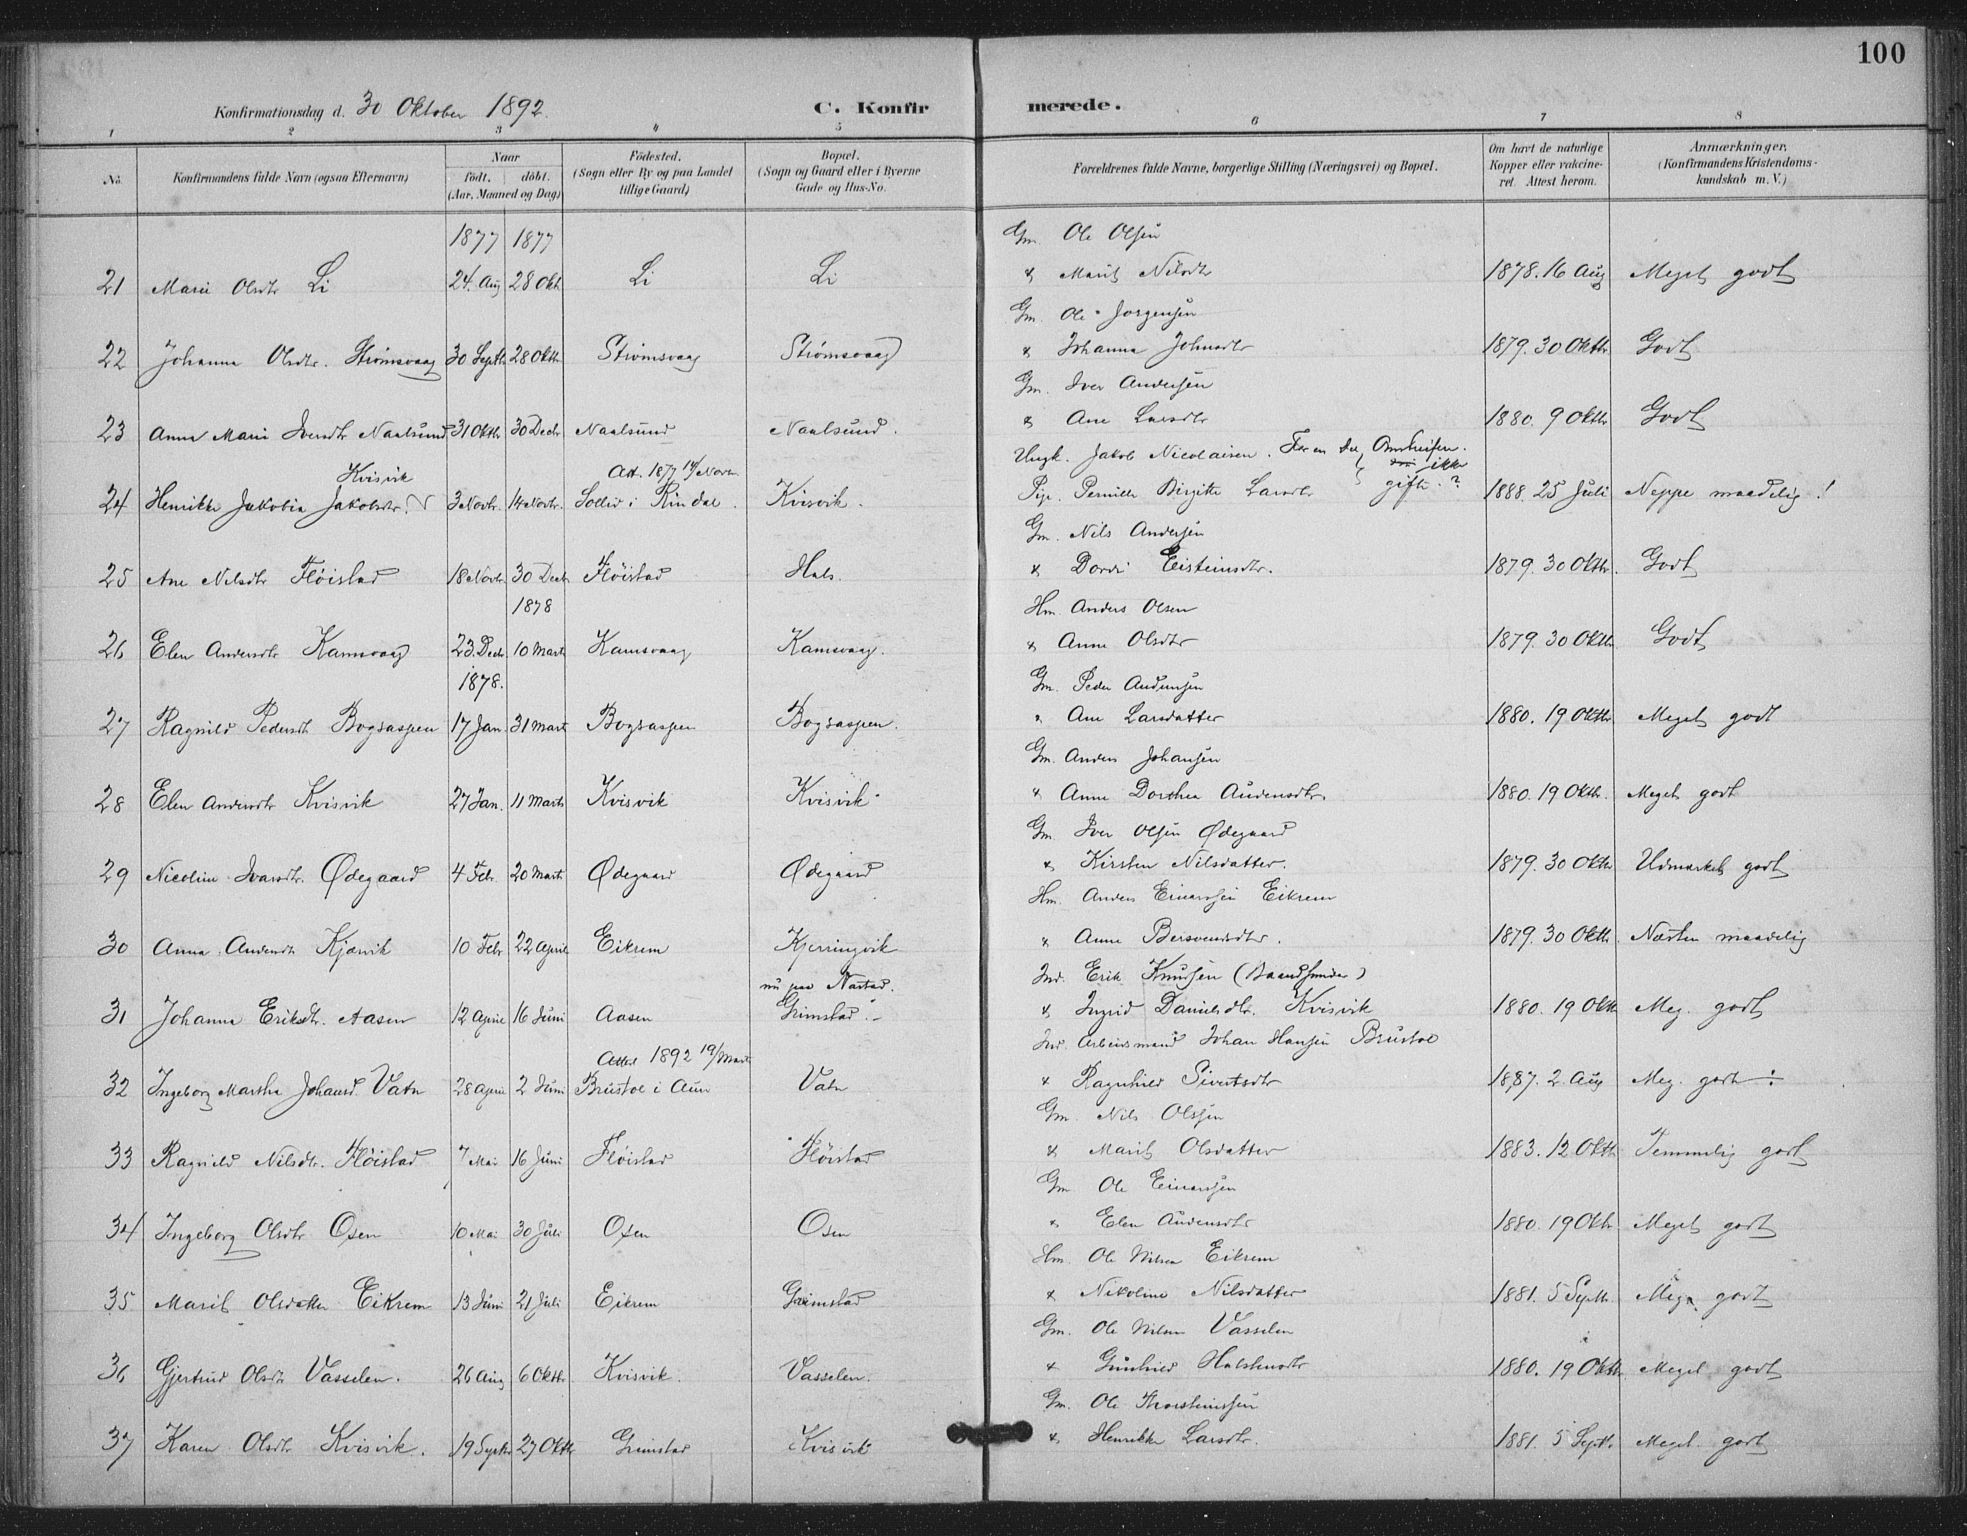 100
Konfirmationsdag d. 30 Oktober 1892. C. Konfir merede.
1 2 3 4 5 6 7 8
No. Konfirmandens fulde Navn (ogsaa Efternavn) Naar født. døbt. (Aar, Maaned og Dag) Fødested. (Sogn eller By og paa Landet tillige Gaard) Bopæl. (Sogn og Gaard eller i Byerne Gade og Hus-No. Forældrenes fulde Navne, borgerlige Stilling (Næringsvei) og Bopæl. Om havt de naturlige Kopper eller vakcineret. Attest herom. Anmærkninger. (Konfirmandens Kristendomskundskab m. V.)
1877 1877 Gm. Ole Olsen
21 Marie Olsdtr Li 24. Aug 28 Okt Li Li & Marit Nilsdtr 1878. 16 Aug Meget godt
Gm. Ole Jørgensen
22 Johanna Olsdtr. Strömsvaag 30 Septb 28 Oktb Strömsvaag Strömsvaag & Johanna Johnsdtr 1879. 30 Oktbr Godt
Gm. Iver Andersen
23 Anna Marie Iversdtr Naalsund 31 Oktbr 30 Decbr Naalsund Naalsund. & Ane Larsdtr 1880. 9 Oktbr Godt
Kvisvik Att. 1877 14/Novbr Ungk. Jakob Nicolaisen. ikke
24 Henrikke Jakobia Jakobsdtr. 3 Novbr. 14 Novbr. i Rindal. Kvisvik. Pige. Pernille Birgitte Larsdtr gifte.? 1888. 25 Juli Neppe maadelig!
Gm. Nils Andersen
25 Ane Nilsdtr Flöistad 18 Novbr 30 Decb Flöistad Hals. & Dordi Eisteinsdtr. 1879. 30 Oktbr. Godt
1878 Hm. Anders Olsen
26 Elen Andersdtr Kamsvaag 23. Decbr 10 Marts Kamsvaag Kamsvaag. & Anne Olsdtr 1879. 30 Oktbr. Godt
1878. Gm. Peder Andersen
27 Ragnild Pedersdt Bogsaspen 17 Jan. 31 Marts Bogsaspen Bogsaspen. & Ane Larsdatter 1880. 19 Oktbr. Meget godt
Gm. Anders Johansen
28 Elen Andersdtr Kvisvik 27 Jan. 11 Marts Kvisvik Kvisvik & Anne Dorthea Audensdtr. 1880. 19 Oktbr. Meget godt
Gm. Iver Olsen Ødegaard
29 Nicoline Ivarsdtr. Ødegaard 4 Febr. 20 Marts Ødegaard Ødegaard & Kirsten Nilsdatter. 1879. 30 Oktbr. Udmærket godt
Hm. Anders Einarsen Eikrem
30 Anna Andersdtr Kjærvik 10 Febr 22 April Eikrem Kjerringvik & Anne Bersvendsdtr. 1879. 30 Oktbr. Næsten maadelig
nu paa Nastad. Ind. Erik Knudsen
31 Johanna Eriksdtr. Aasen 12 April 16 Juni Aasen Grimstad & Ingrid Danielsdtr. Kvisvik 1880. 19 Oktb Meg. godt
Attest 1892 19/Marts Ind. Arbeidsmand Johan Hansen Brustöl
32 Ingeborg Martha Johansd. Vatn 28 April 2 Juni Brustöl i Aure Vatn & Ragnhild Sivertsdtr 1887. 2 Aug Meg. godt
Gm. Nils Olsen
33 Ragnild Nilsdtr. Flöistad 7 Mai 16 Juni Flöistad Flöistad & Marit Olsdatter 1883. 12 Oktb Temmelig godt
Gm. Ole Einarsen
34 Ingeborg Olsdtr Osen 10 Mai 30 Juli Osen Osen & Elen Audensdtr 1880. 19 Oktb. Meget godt
Hm. Ole Nilsen Eikrem
35 Marit Olsdatter Eikrem 13 Juni 21 Juli Eikrem Grimstad & Nikoline Nilsdatter 1881. 5 Septb. Meg. godt
Gm. Ole Nilsen Vasselen
36 Gjertrud Olsdtr Vasselen. 26 Aug 6 Oktbr. Kvisvik. Vasselen. & Gunhild Halstensdtr 1880. 19 Oktbr Meget godt
Gm. Ole Thorsteinsen
37 Karen Olsdtr Kvisvik. 19 Septbr 27 Oktbr Grimstad Kvisvik & Henrikke Larsdtr. 1881. 5 Septbr Meget godt